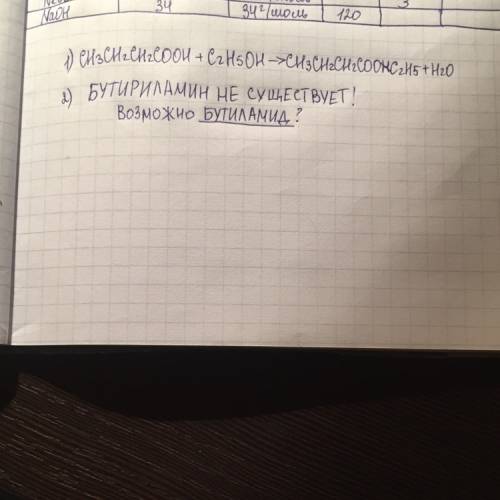 NaOH 34 34г/моль 120 3
1) CH3CH2CH2COOH + C2H5OH → CH3CH2CH2COOHC2H5 + H2O
2) БУТИРИЛАМИН НЕ СУЩЕСТВУЕТ!
ВОЗМОЖНО БУТИЛАМИД?